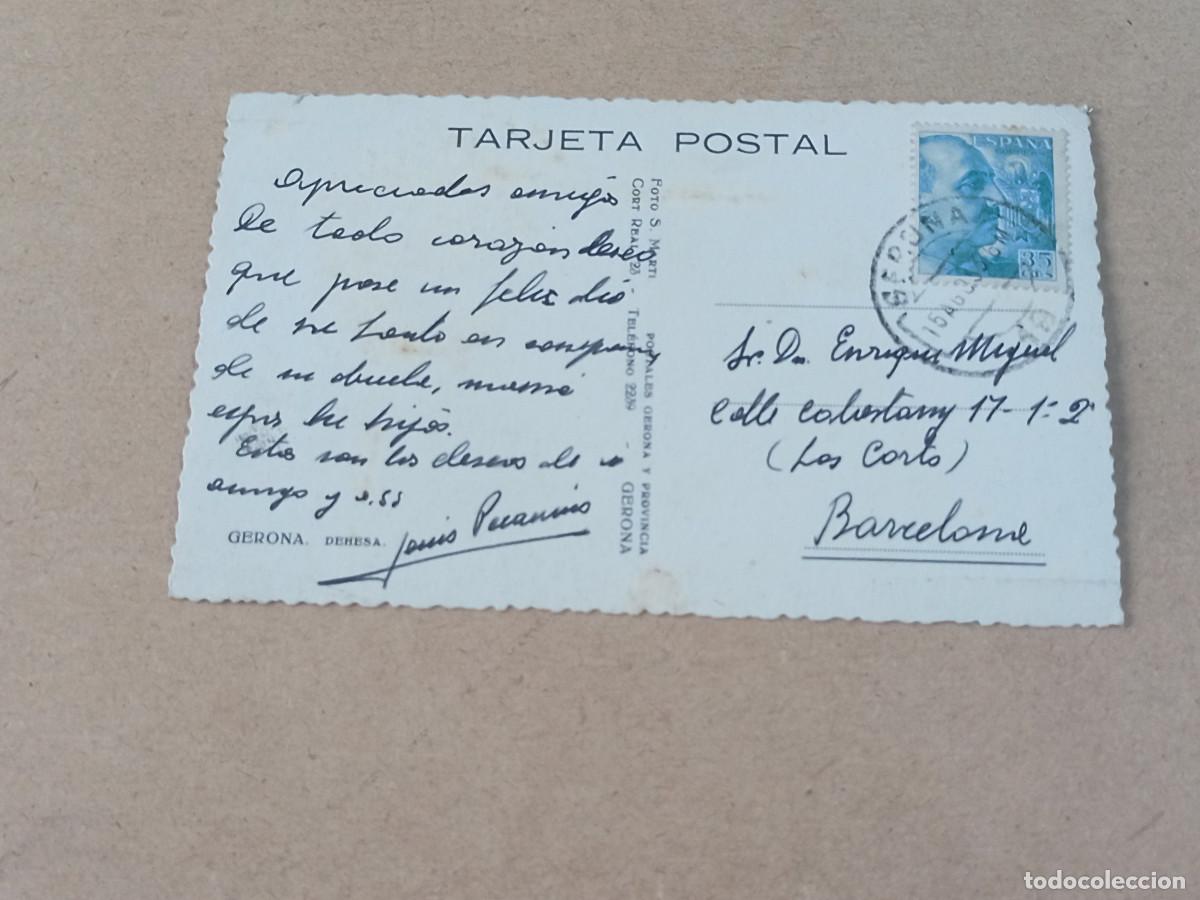 TARJETA POSTAL
Apreciados amigos
De todo corazón deseo
que pase un feliz dia
de su Santo en compañia
de su abuela, mamá
esposa he hijos.
Estos son los deseos de su
amigo y s.ss
GERONA. DEHESA.
FOTO S. MARTI POSTALES GERONA Y PROVINCIA
CORT REAL, 23 - TELÉFONO 2239 - GERONA
ESPAÑA
35
GERONA
Sr. Dn. Enrique Miquel
Calle Cabestany 17-1º 2ª
(Las Corts)
Barcelona
todocoleccion